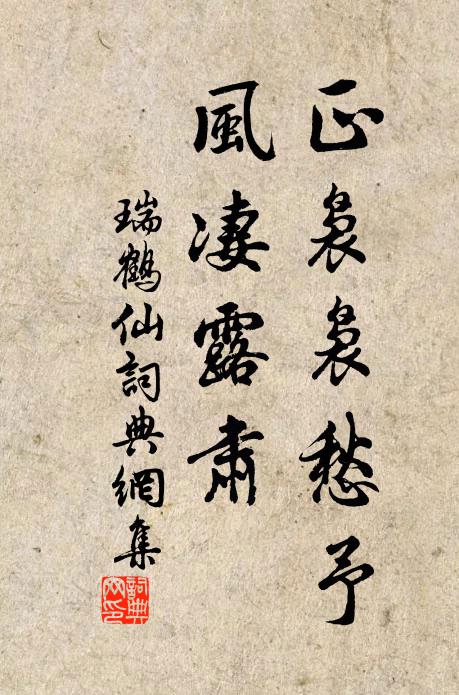 正裊裊愁予
風凄露肅
瑞鶴仙詞典網集
詞典网印